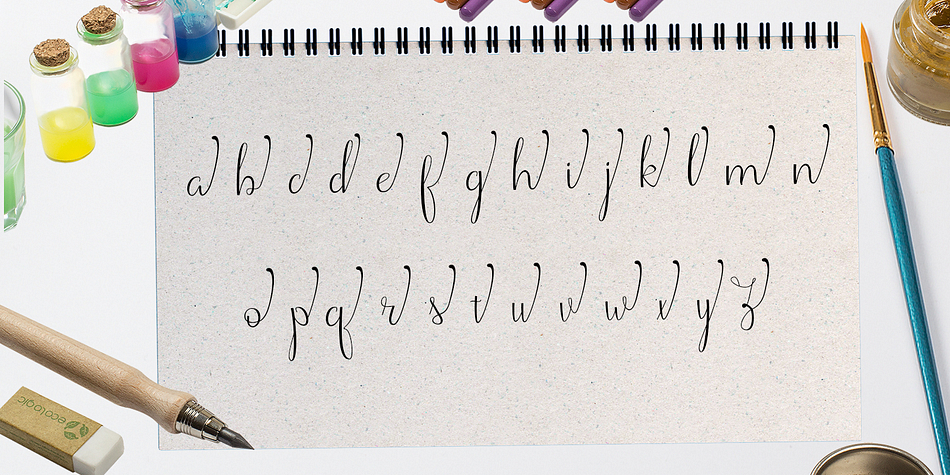 a b c d e f g h i j k l m n
o p q r s t u v w x y z
ecologic